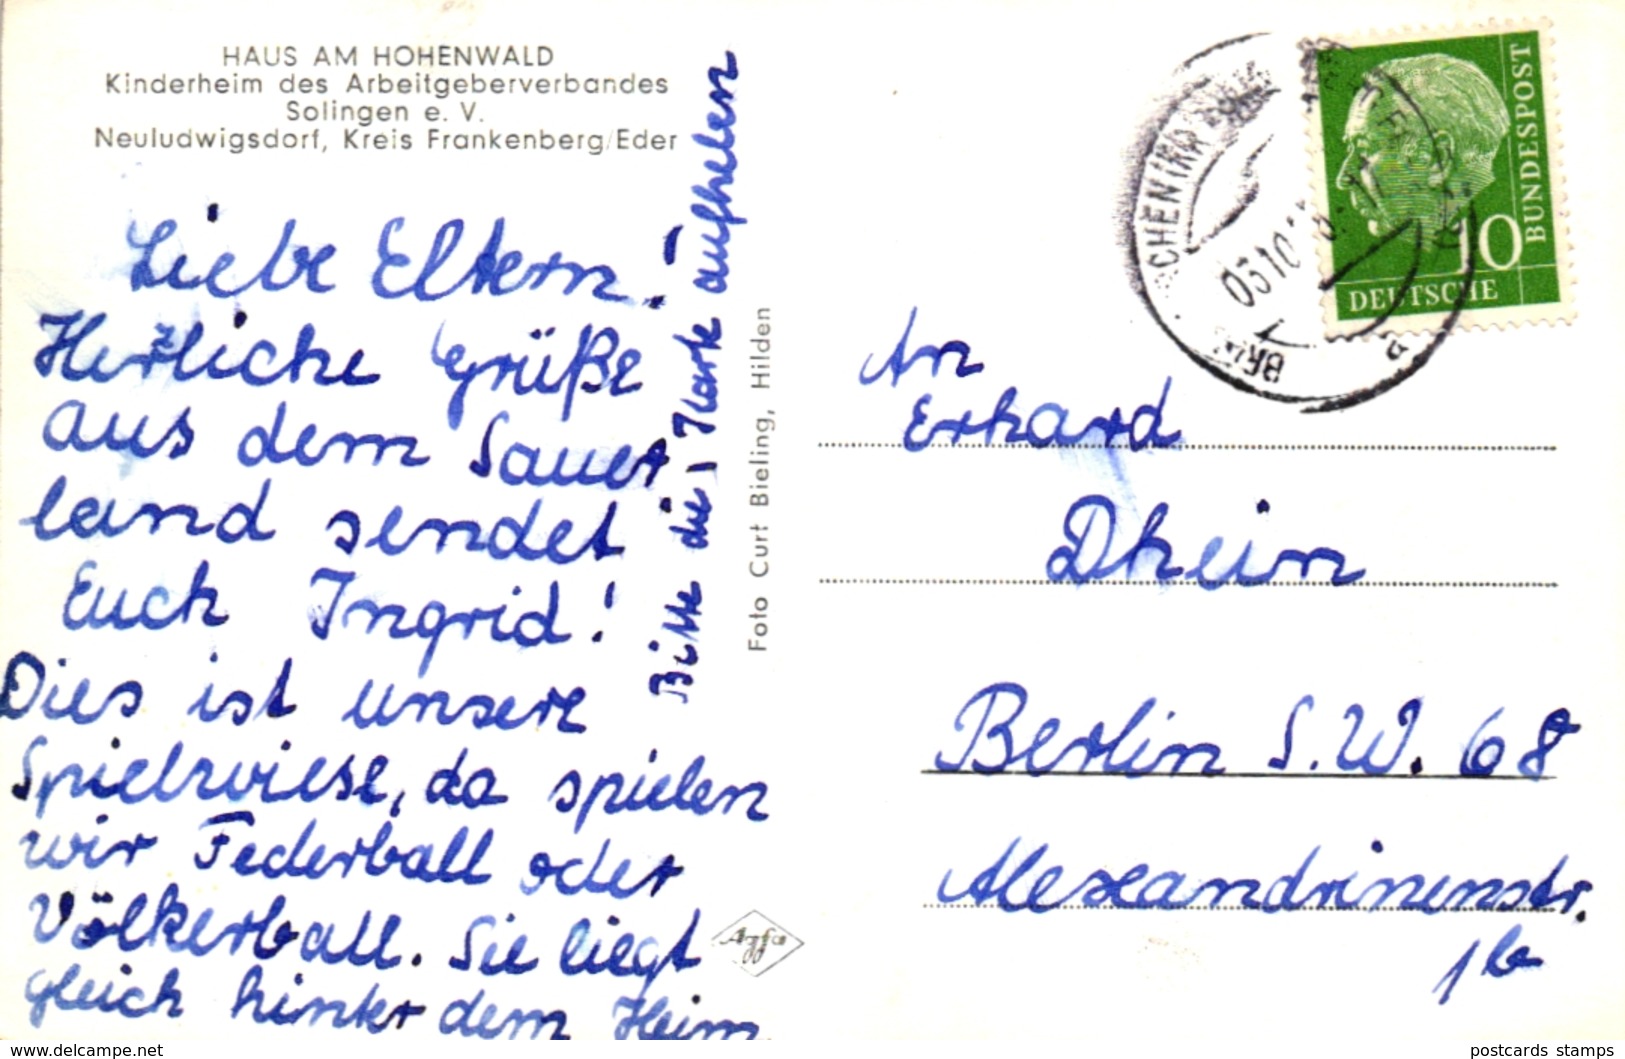 HAUS AM HOHENWALD
Kinderheim des Arbeitgeberverbandes
Solingen e. V.
Neuludwigsdorf, Kreis Frankenberg/Eder
Liebe Eltern!
Herzliche Grüße
aus dem Sauer
land sendet
Euch Ingrid!
Dies ist unsere
Spielwiese, da spielen
wir Federball oder
Völkerball. Sie liegt
gleich hinter dem Heim
Bitte die Karte aufheben
Foto Curt Bieling, Hilden
Agfa
DEUTSCHE
BUNDESPOST
10
An
Erhard
Dhein
Berlin S.W. 68
Alexandrinenstr.
1b
www.delcampe.net
postcards stamps